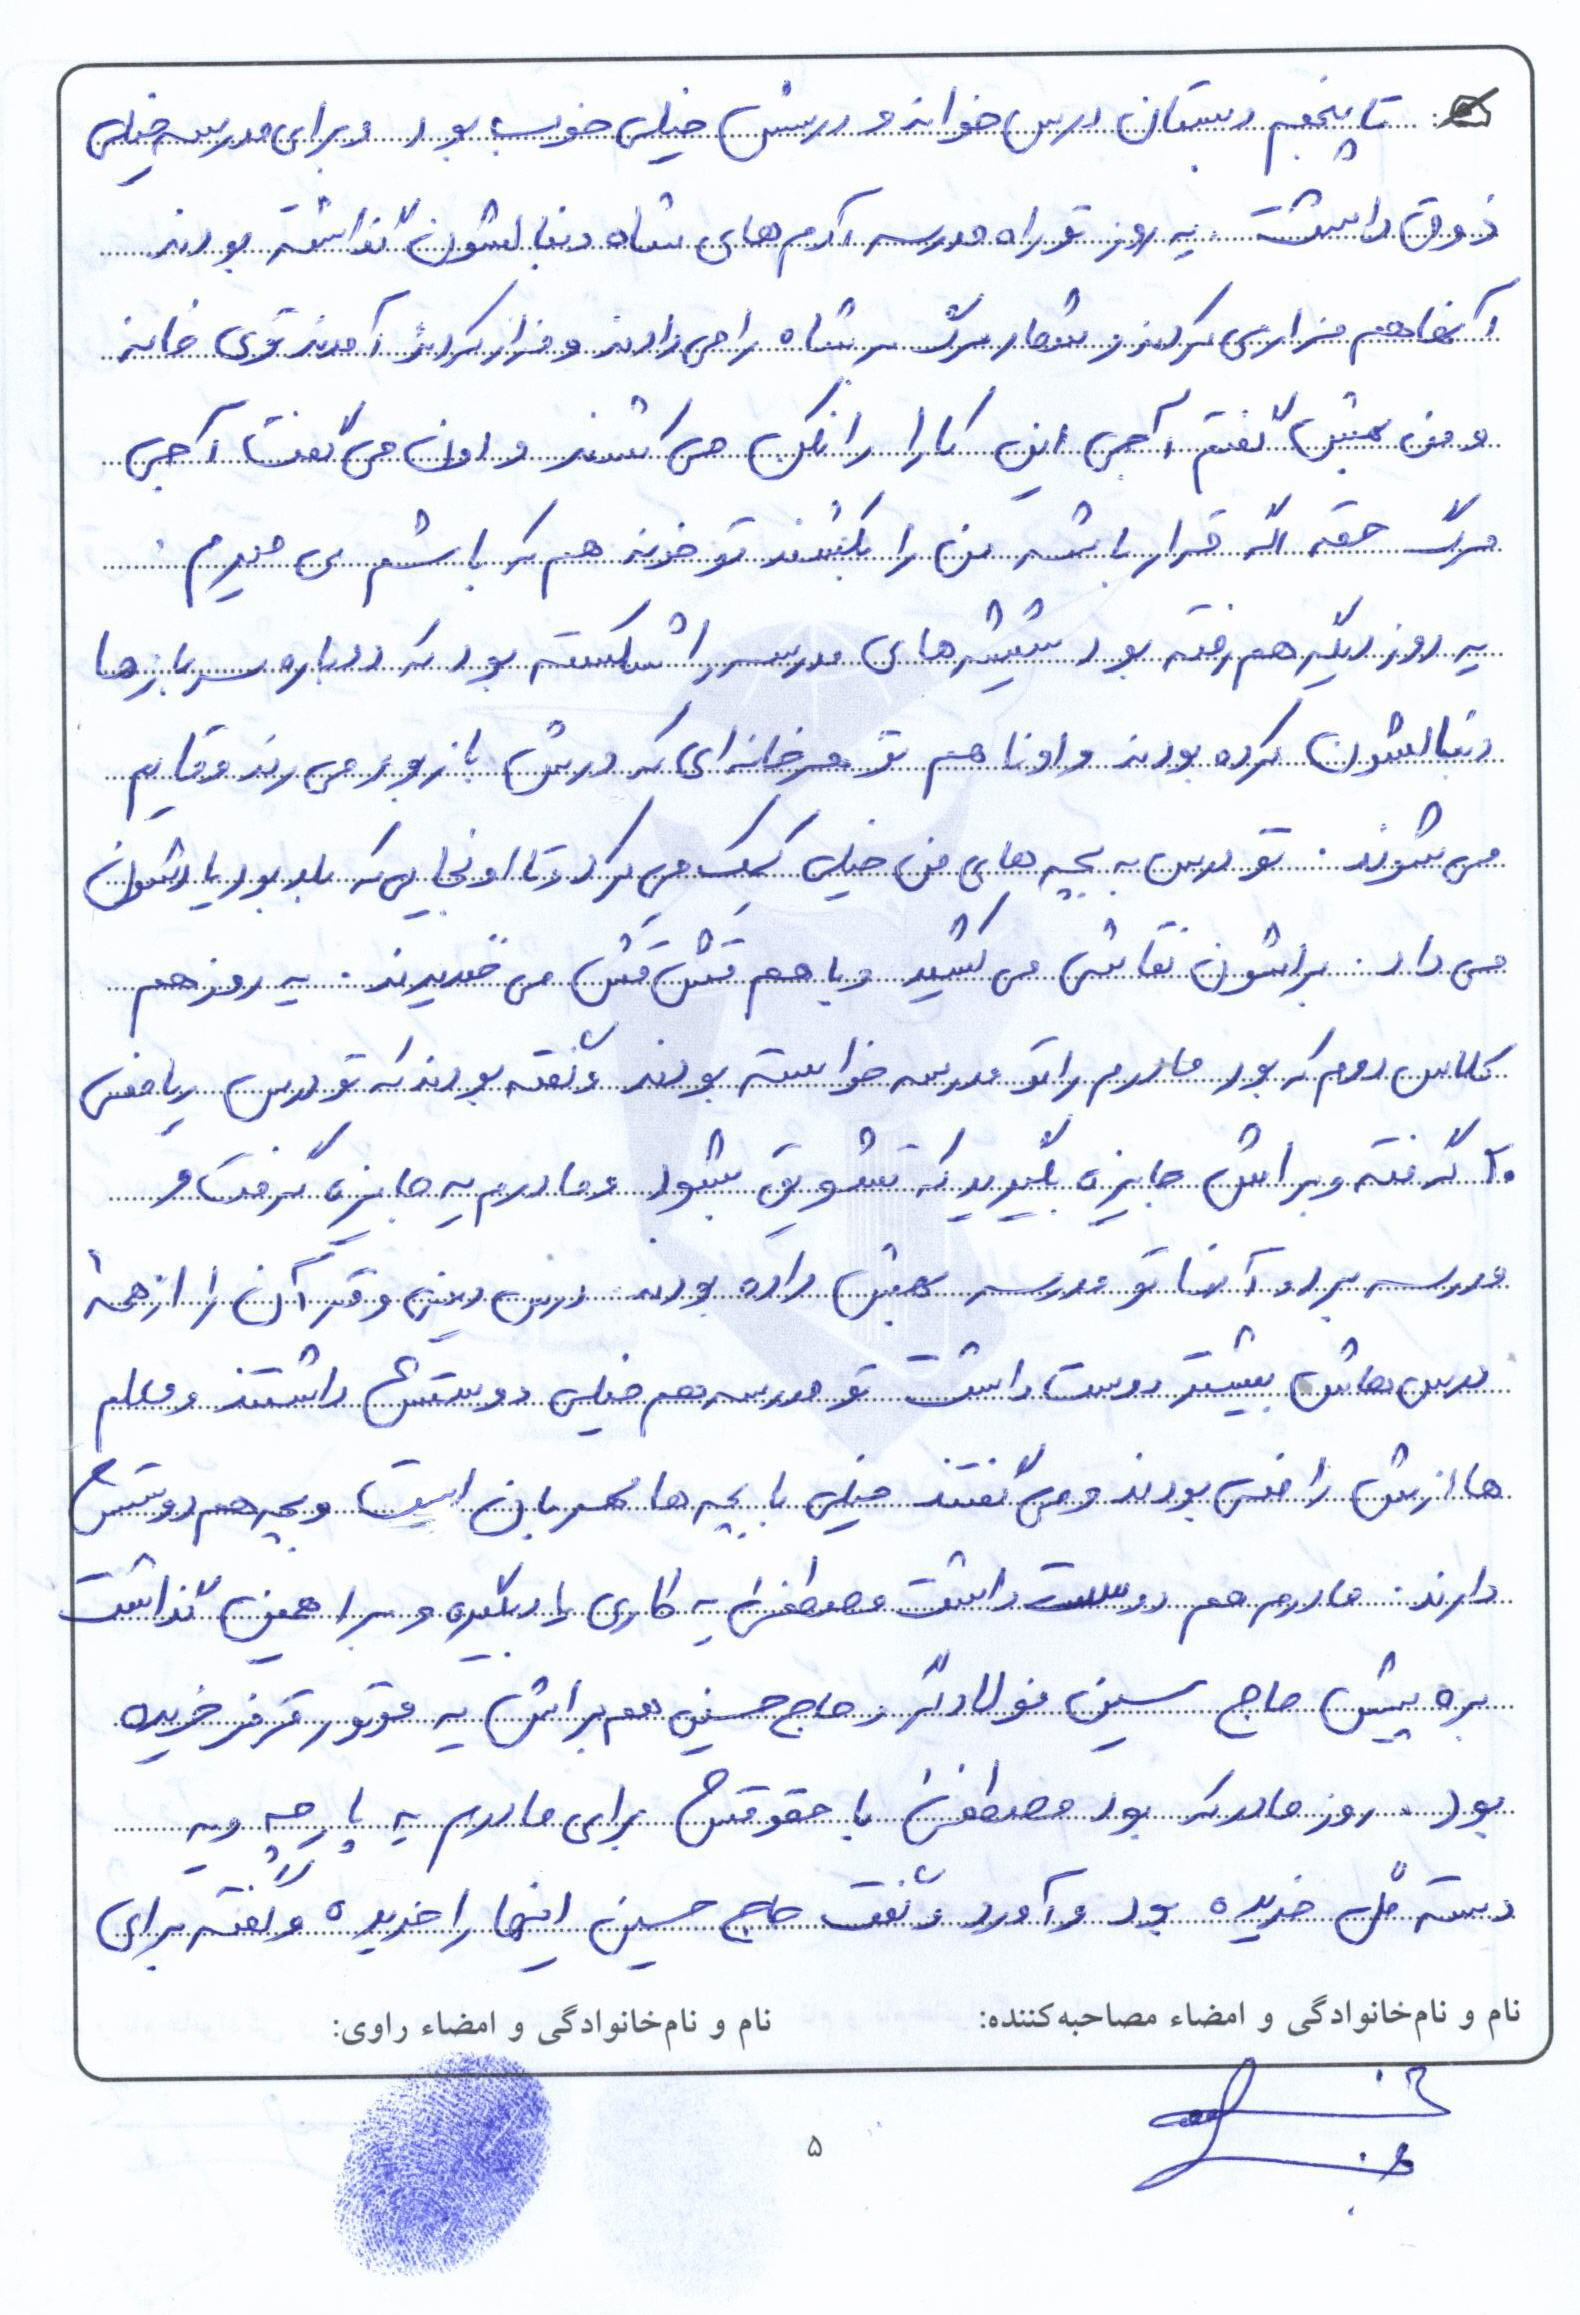 تا پنجم دبستان درس خواند و درسش خیلی خوب بود و برای مدرسه خیلی
ذوق داشت. یه روز تو راه مدرسه آدم های شاه دنبالشون گذاشته بودند
آنها هم فرار می کردند و شعار مرگ بر شاه را می دادند و فرار کردند آمدند توی خانه
و من بهش گفتم آجی این کارا را نکن می کشند و اون می گفت آجی
مرگ حقه اگه قرار باشه من را بکشند تو خونه هم که باشم می میرم.
یه روز دیگه هم رفته بود شیشه های مدرسه را شکسته بود که دوباره سربازها
دنبالشون کرده بودند و اونا هم تو هر خانه ای که درش باز بود می رند و قایم
می شوند. تو درس به بچه های من خیلی کمک می کرد و تا اونجایی که بلد بود یادشون
می داد. براشون نقاشی می کشید و با هم قش قش می خندیدند. یه روز هم
کلاس دوم که بود مادرم را تو مدرسه خواسته بودند و گفته بودند که تو درس ریاضی
۲۰ گرفته و براش جایزه بگیرید که تشویق بشود و مادرم یه جایزه گرفت و
مدرسه برد و آنها تو مدرسه بهش داده بودند. درس دینی و قرآن را از همهٔ
درس هاش بیشتر دوست داشت تو مدرسه هم خیلی دوستش داشتند و معلم
ها ازش راضی بودند و می گفتند خیلی با بچه ها مهربان است و بچه هم دوستش
دارند. مادرم هم دوست داشت مصطفی یه کاری یاد بگیره و برا همین گذاشت
بره پیش حاج حسین فولادگر و حاج حسین هم براش یه موتور قرمز خریده
بود. روز مادر که بود مصطفی با حقوقش برای مادرم یه پارچه و یه
دسته گل خریده بود و آورد و گفت حاج حسین اینها را خریده و گفته برای
نام و نام‌خانوادگی و امضاء مصاحبه‌کننده: نام و نام‌خانوادگی و امضاء راوی:
۵